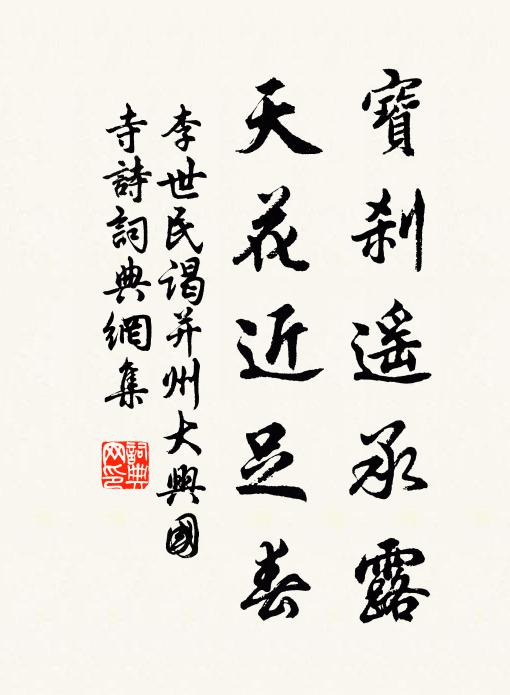 寶刹遥承露
天花近足春
李世民謁并州大興國
寺詩詞典網集
詞典
网印